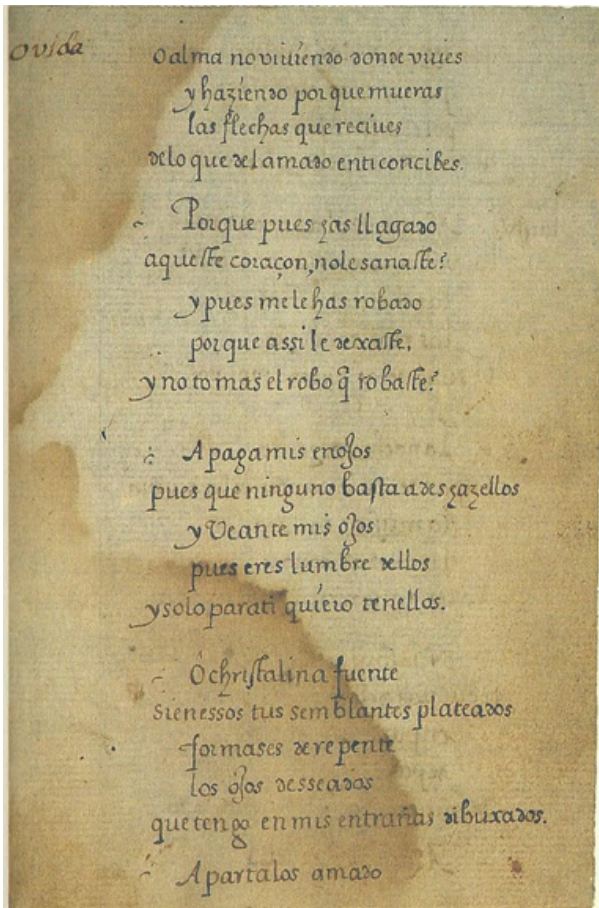 o vida
o alma no viviendo donde vives
y haziendo porque mueras
las flechas que recives
de lo que del amado en ti concibes.
Porque pues has llagado
aqueste coraçon, no le sanaste?
y pues me le has robado
porque assi le dexaste,
y no tomas el robo q̃ robaste?
Apaga mis enojos
pues que ninguno basta a deshazellos
y veante mis ojos
pues eres lumbre dellos
y solo para ti quiero tenellos.
O christalina fuente
si en essos tus semblantes plateados
formases de repente
los ojos desseados
que tengo en mis entrañas dibuxados.
Apartalos amado